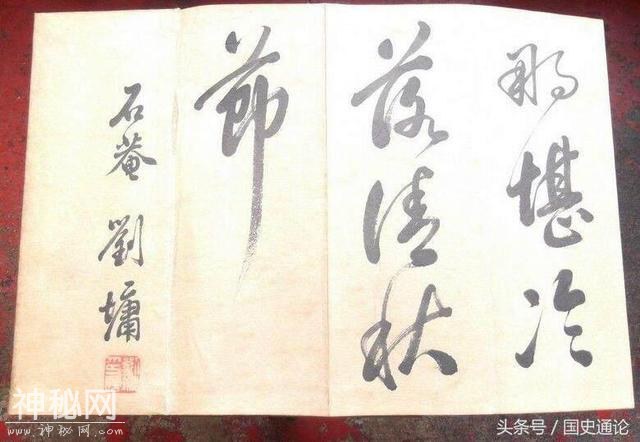 那堪冷
落清秋
節
石菴劉墉
神秘网
www.神秘网.com
头条号/国史通论